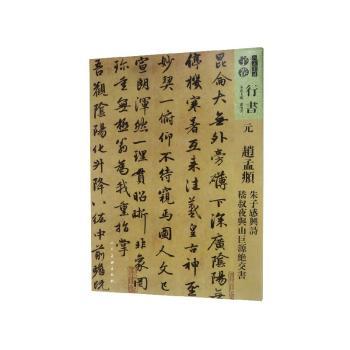 行書
元 趙孟頫
朱子感興詩
嵇叔夜與山巨源絕交書
崑侖大無外旁礴下深廣陰陽無
停機寒暑互來往羲皇古神聖
妙契一俯仰不待窺馬圖人文已
宣朗渾然一理貫昭晰非象罔
珍重無極翁為我重指掌
吾觀陰陽化升降八紘中前瞻既